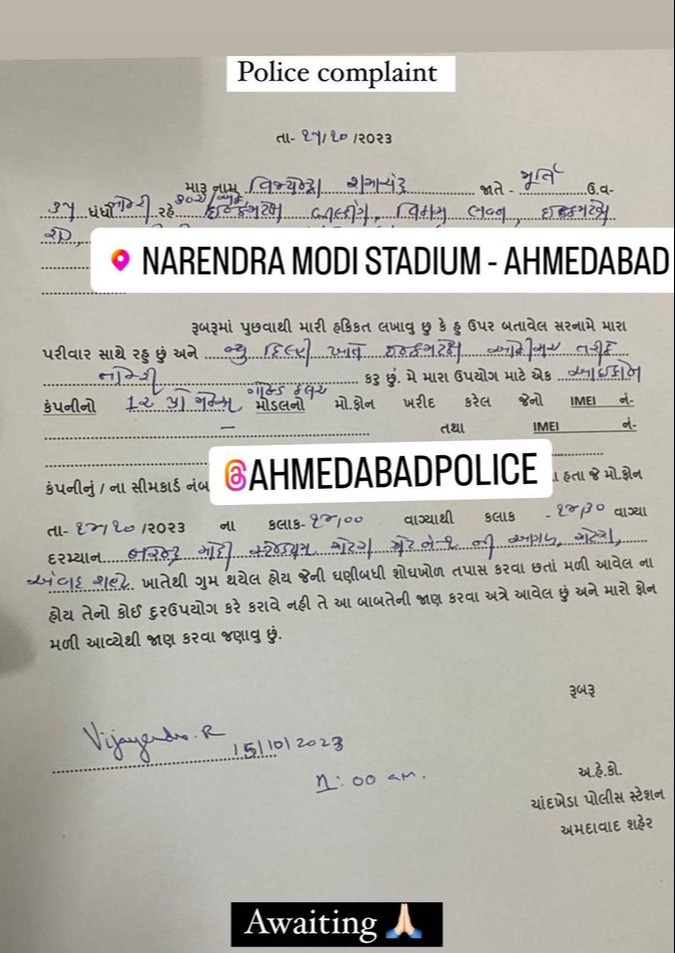 Police complaint
તા- ૧૫/૧૦ /૨૦૨૩
મારૂ નામ વિજયેન્દ્રા જાતે - મૂર્તિ ઉ.વ-
૩૫ ધંધો નોકરી રહે
NARENDRA MODI STADIUM - AHMEDABAD
રૂબરૂમાં પુછવાથી મારી હકિકત લખાવુ છુ કે હુ ઉપર બતાવેલ સરનામે મારા
પરીવાર સાથે રહુ છું અને ન્યુ દિલ્લી ખાતે ઇન્કમટેક્ષ તરીકે
નોકરી કરૂ છું. મે મારા ઉપયોગ માટે એક આઇફોન
કંપનીનો 12 પ્રો મેક્ષ ગોલ્ડ કલર મોડલનો મો.ફોન ખરીદ કરેલ જેનો IMEI નં-
– તથા IMEI નં-
@AHMEDABADPOLICE
કંપનીનું / ના સીમકાર્ડ નંબ હતા જે મો.ફોન
તા- ૧૪/૧૦ /૨૦૨૩ ના કલાક- ૧૪/૦૦ વાગ્યાથી કલાક - ૧૪/૩૦ વાગ્યા
દરમ્યાન નરેન્દ્ર મોદી સ્ટેડીયમ ગેટ નં-૧ ની આગળ,
ખાતેથી ગુમ થયેલ હોય જેની ઘણીબધી શોધખોળ તપાસ કરવા છતાં મળી આવેલ ના
હોય તેનો કોઈ દુરઉપયોગ કરે કરાવે નહી તે આ બાબતેની જાણ કરવા અત્રે આવેલ છું અને મારો ફોન
મળી આવ્યેથી જાણ કરવા જણાવુ છું.
રૂબરૂ
Vijayendra.R
15/10/2023
11:00 am.
અ.હે.કો.
ચાંદખેડા પોલીસ સ્ટેશન
અમદાવાદ શહેર
Awaiting 🙏🏻